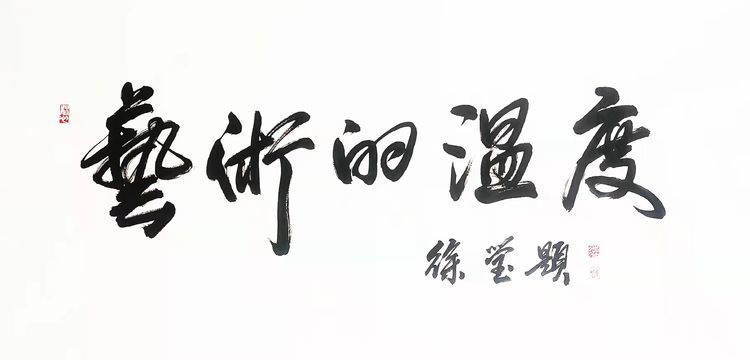 藝術的溫度
徐瑩題